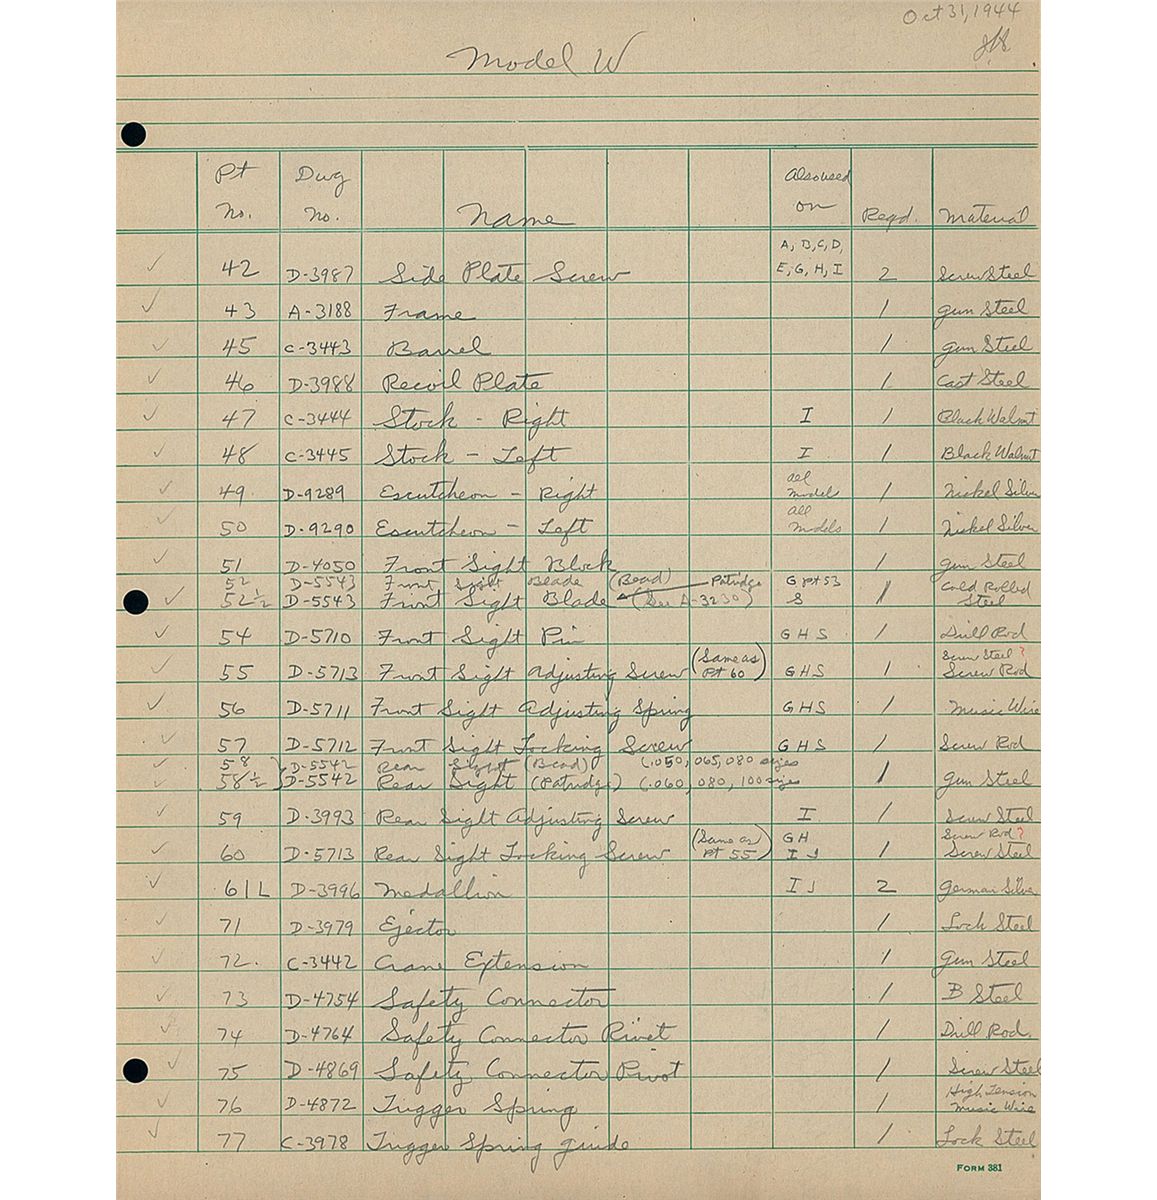 Oct 31, 1944
Model W
Pt No. Dwg No. Name Also used on Reqd. Material
A, B, C, D,
42 D-3987 Side Plate Screw E, G, H, I 2 Screw Steel
43 A-3188 Frame 1 Gun Steel
45 C-3443 Barrel 1 Gun Steel
46 D-3988 Recoil Plate 1 Cast Steel
47 C-3444 Stock - Right I 1 Black Walnut
48 C-3445 Stock - Left I 1 Black Walnut
49 D-9289 Escutcheon - Right all models 1 Nickel Silver
50 D-9290 Escutcheon - Left All models 1 Nickel Silver
51 D-4050 Front Sight Block 1 Gun Steel
52 D-5543 Front Sight Blade (Bead) Patridge G Pt 53 Cold Rolled
52½ D-5543 Front Sight Blade (See A-3230) S 1 Steel
54 D-5710 Front Sight Pin G H S 1 Drill Rod
(Same as Screw Steel?
55 D-5713 Front Sight Adjusting Screw Pt 60) G H S 1 Screw Rod
56 D-5711 Front Sight Adjusting Spring G H S 1 Music Wire
57 D-5712 Front Sight Locking Screw G H S 1 Screw Rod
58 D-5542 Rear Sight (Bead) (.050,.065,.080 sizes
58½ D-5542 Rear Sight (Patridge) (.060,.080,.100 sizes 1 Gun Steel
59 D-3993 Rear Sight Adjusting Screw I 1 Screw Steel
(Same as G H Screw Rod?
60 D-5713 Rear Sight Locking Screw Pt 55) I J 1 Screw Steel
61L D-3996 Medallion I J 2 German Silver
71 D-3979 Ejector 1 Lock Steel
72. C-3442 Crane Extension 1 Gun Steel
73 D-4754 Safety Connector 1 B Steel
74 D-4764 Safety Connector Rivet 1 Drill Rod.
75 D-4869 Safety Connector Pivot 1 Screw Steel
High Tension
76 D-4872 Trigger Spring 1 Music Wire
77 C-3978 Trigger Spring Guide 1 Lock Steel
FORM 381